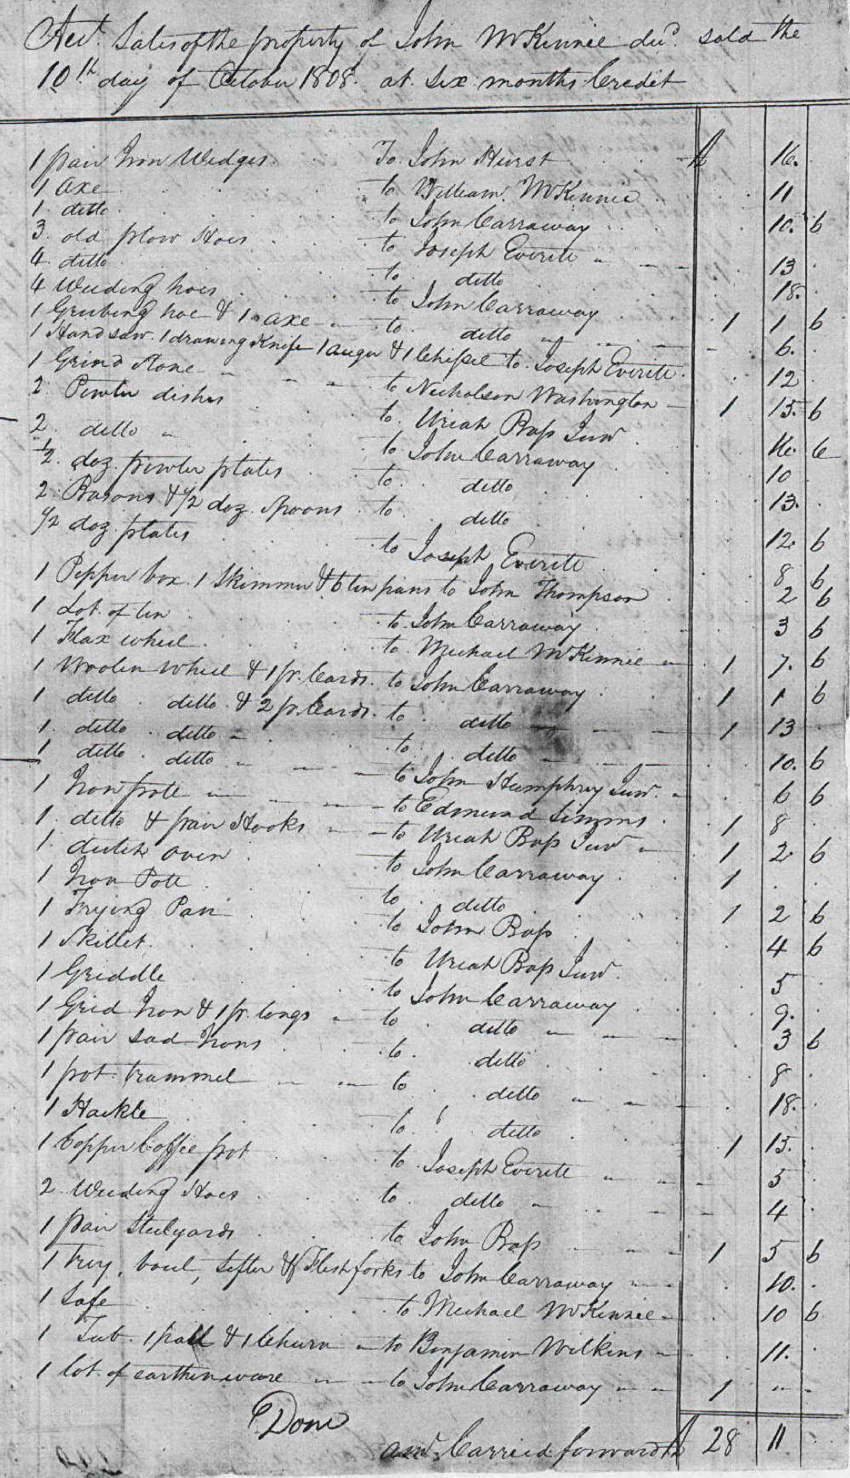 Acct. Sales of the property of John McKinnie decd. sold the
10th day of October 1808. at Six months Credit
1 pair Iron Wedges To John Hurst £ 16.
1 axe to William McKinnie 11
1 ditto to John Carraway 10. 6
3 old plow Hoes to Joseph Everett 13
4 ditto to ditto 18.
4 Weeding hoes to John Carraway 1 1 6
1 Grubing hoe & 1 axe to ditto 6.
1 Handsaw 1 drawing Knife 1 auger & 1 Chissel to Joseph Everett 12
1 Grind Stone to Nicholson Washington 1 15. 6
2 Pewter dishes to Uriah Bass Junr. 16. 6
2 ditto to John Carraway 10
1/2 doz. pewter plates to ditto 13.
2 Basons & 1/2 doz. Spoons to ditto 12. 6
1/2 doz plates to Joseph Everett 8 6
1 Pepper box 1 Skimmer & 6 tin pans to John Thompson 2 6
1 Lot of tin to John Carraway 3 6
1 Flax wheel to Michael McKinnie 1 7. 6
1 Woolen Wheel & 1 pr. Cards to John Carraway 1 1 6
1 ditto ditto & 2 pr. Cards to ditto 1 13
1 ditto ditto to ditto 10. 6
1 ditto ditto to John Humphrey Junr. 6 6
1 Iron pott to Edmund Simms 1 8
1 ditto & pair Hooks to Uriah Bass Junr 1 2 6
1 dutch oven to John Carraway 1
1 Iron Pott to ditto 1 2 6
1 Frying Pan to John Bass 4 6
1 Skillet to Uriah Bass Junr 5
1 Griddle to John Carraway 9.
1 Grid Iron & 1 pr. tongs to ditto 3 6
1 pair Sad Irons to ditto 8
1 pot trammel to ditto 18.
1 Hackle to ditto 1 15.
1 Copper Coffee pot to Joseph Everett 5
2 Weeding Hoes to ditto 4
1 pair Steelyards to John Bass 1 5 6
1 bowl, Sifter & Flesh forks to John Carraway 10.
1 Safe to Michael McKinnie 10 6
1 Tub 1 pail & 1 Churn to Benjamin Wilkins 11.
1 Lot of earthenware to John Carraway 1 " "
amt. Carried forward £ 28 11